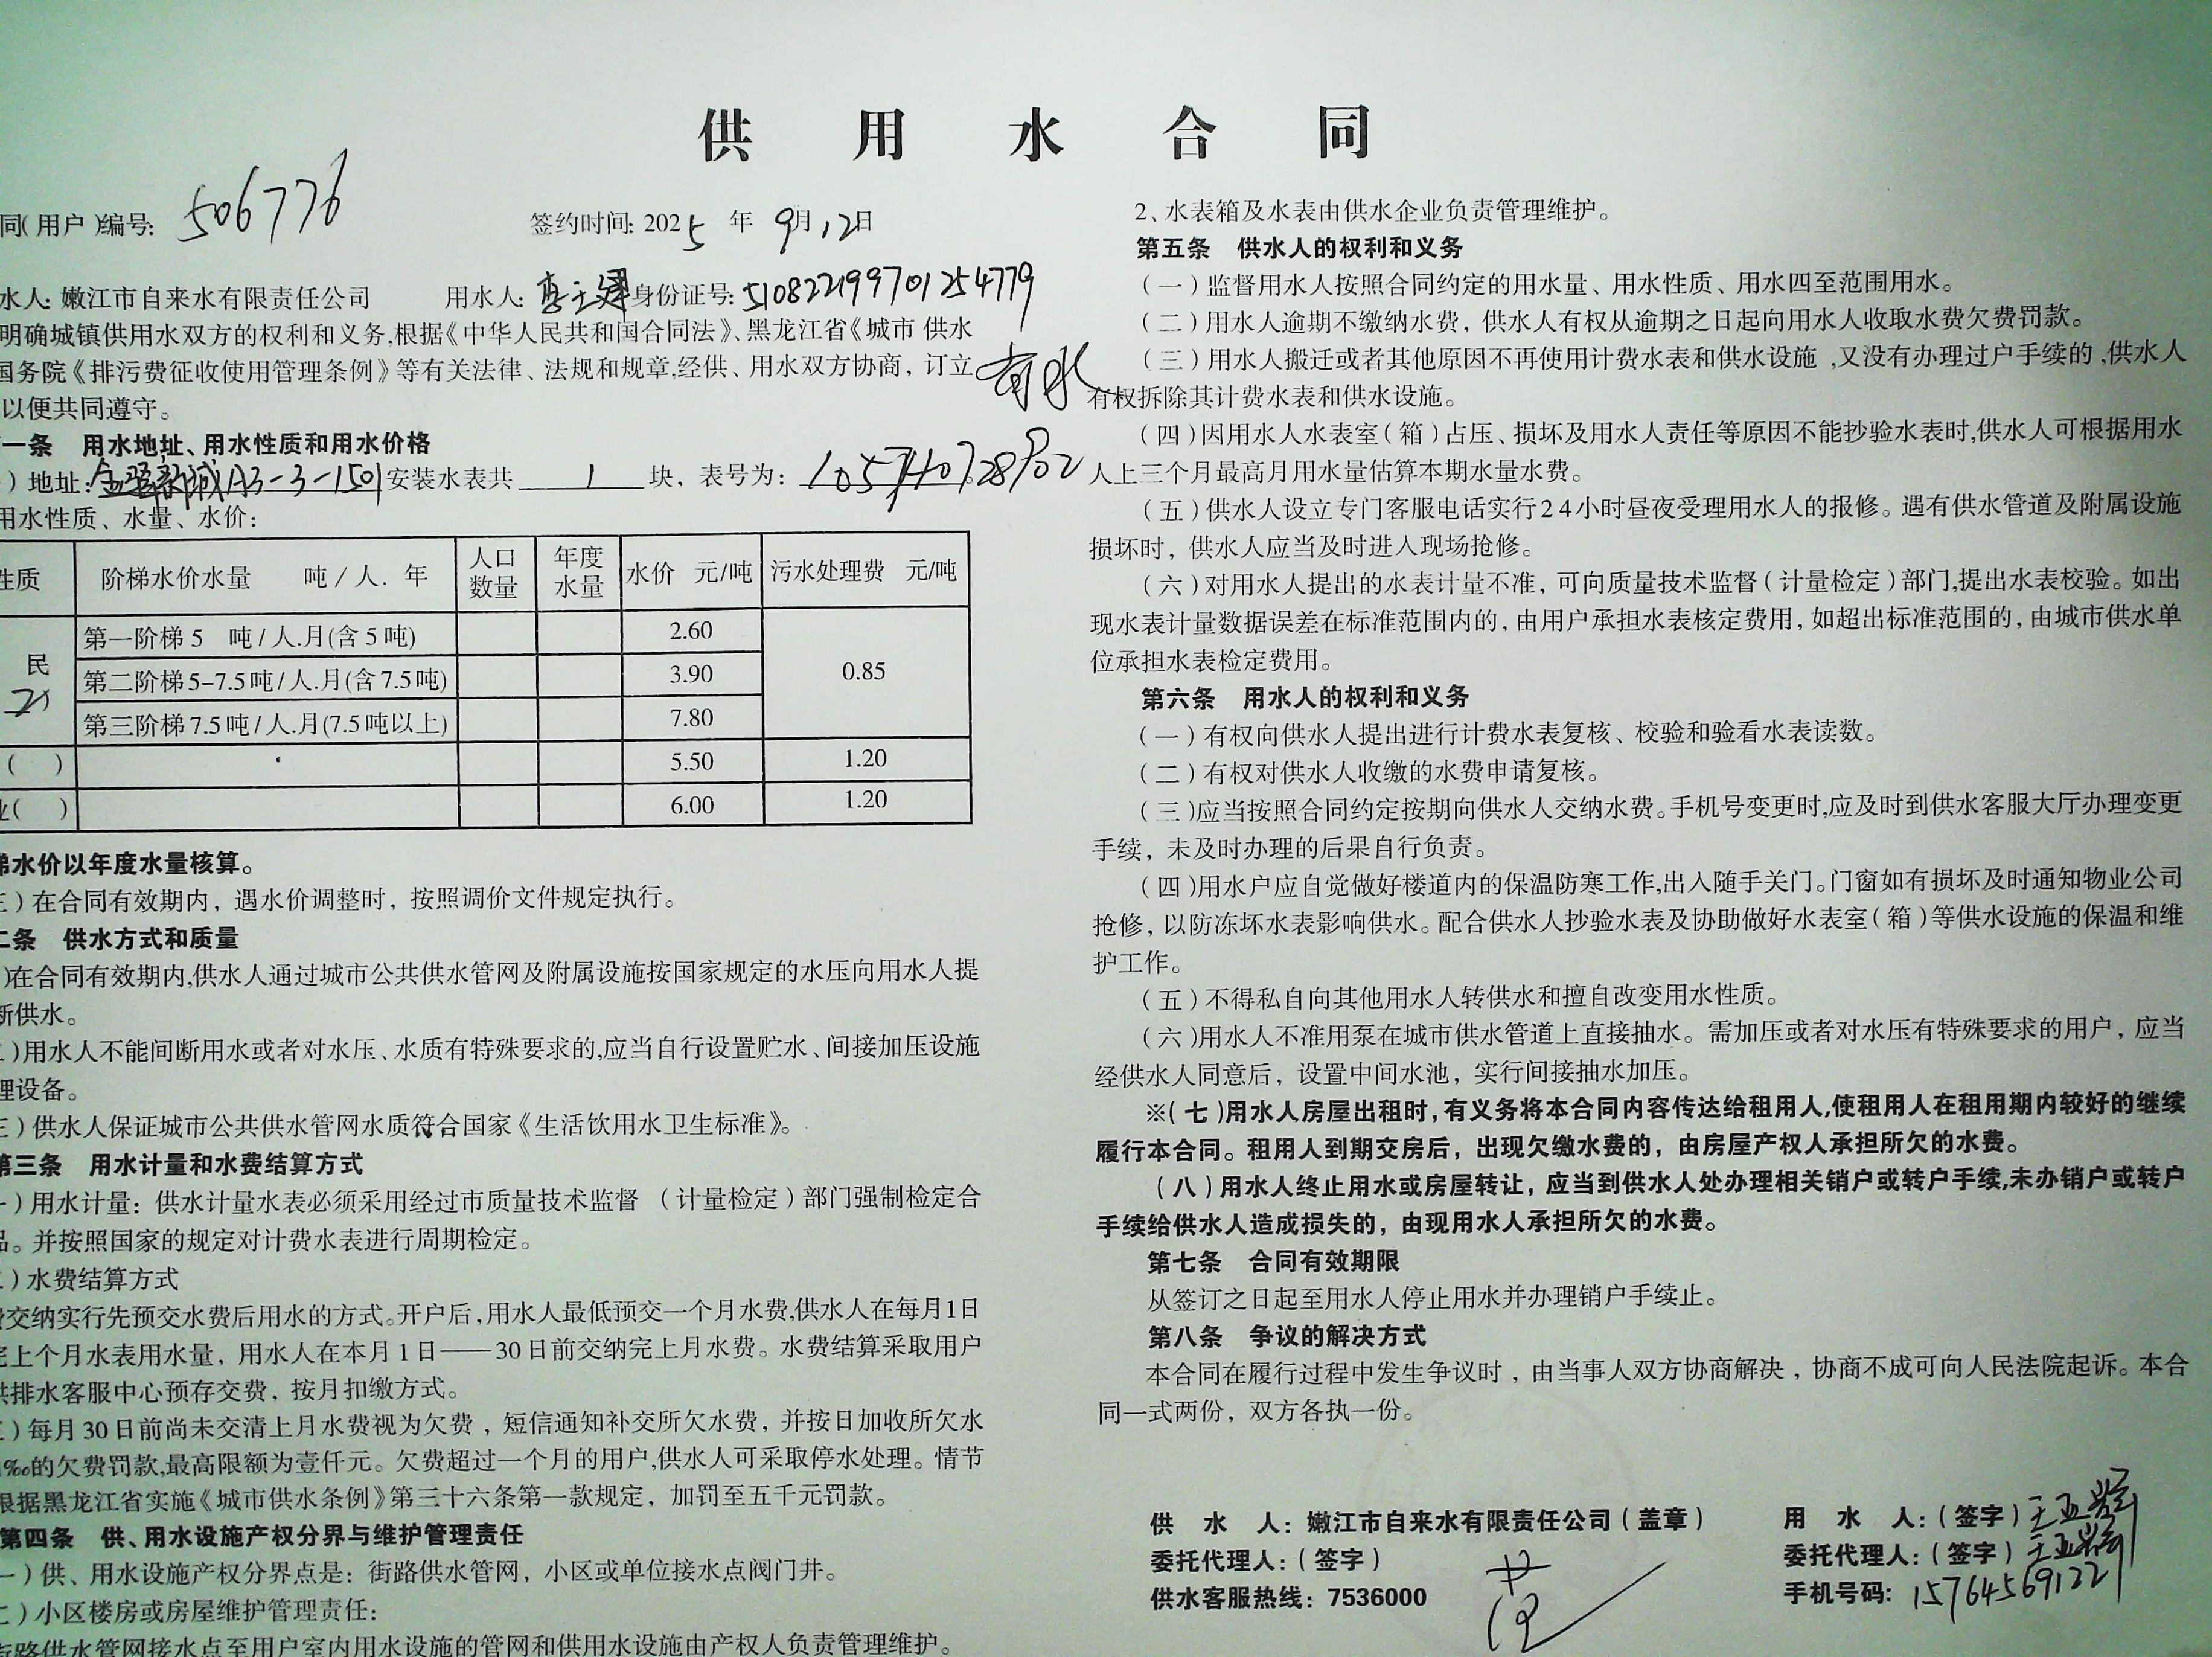 供用水合同
同(用户)编号: 506776 签约时间: 2025年9月12日
水人: 嫩江市自来水有限责任公司 用水人: 身份证号: 510822199701254779
明确城镇供用水双方的权利和义务,根据《中华人民共和国合同法》、黑龙江省《城市 供水
国务院《排污费征收使用管理条例》等有关法律、法规和规章,经供、用水双方协商, 订立
以便共同遵守。
一条 用水地址、用水性质和用水价格
)地址: A3-3-1501安装水表共 1 块, 表号为:
用水性质、水量、水价:
性质 阶梯水价水量 吨/人.年 人口数量 年度水量 水价 元/吨 污水处理费 元/吨
民 第一阶梯 5 吨/人.月(含 5 吨) 2.60 0.85
第二阶梯5-7.5吨/人.月(含7.5吨) 3.90
第三阶梯7.5吨/人.月(7.5吨以上) 7.80
( ) 5.50 1.20
业( ) 6.00 1.20
梯水价以年度水量核算。
三)在合同有效期内, 遇水价调整时, 按照调价文件规定执行。
二条 供水方式和质量
)在合同有效期内,供水人通过城市公共供水管网及附属设施按国家规定的水压向用水人提
断供水。
二)用水人不能间断用水或者对水压、水质有特殊要求的,应当自行设置贮水、间接加压设施
理设备。
三)供水人保证城市公共供水管网水质符合国家《生活饮用水卫生标准》。
第三条 用水计量和水费结算方式
一)用水计量: 供水计量水表必须采用经过市质量技术监督 (计量检定)部门强制检定合
品。并按照国家的规定对计费水表进行周期检定。
二)水费结算方式
费交纳实行先预交水费后用水的方式。开户后,用水人最低预交一个月水费,供水人在每月1日
完上个月水表用水量, 用水人在本月1日——30日前交纳完上月水费。水费结算采取用户
供排水客服中心预存交费, 按月扣缴方式。
三)每月30日前尚未交清上月水费视为欠费, 短信通知补交所欠水费, 并按日加收所欠水
‰的欠费罚款,最高限额为壹仟元。欠费超过一个月的用户,供水人可采取停水处理。情节
根据黑龙江省实施《城市供水条例》第三十六条第一款规定, 加罚至五千元罚款。
第四条 供、用水设施产权分界与维护管理责任
一)供、用水设施产权分界点是: 街路供水管网, 小区或单位接水点阀门井。
二)小区楼房或房屋维护管理责任:
街路供水管网接水点至用户室内用水设施的管网和供用水设施由产权人负责管理维护。
2、水表箱及水表由供水企业负责管理维护。
第五条 供水人的权利和义务
(一)监督用水人按照合同约定的用水量、用水性质、用水四至范围用水。
(二)用水人逾期不缴纳水费, 供水人有权从逾期之日起向用水人收取水费欠费罚款。
(三)用水人搬迁或者其他原因不再使用计费水表和供水设施,又没有办理过户手续的,供水人
有权拆除其计费水表和供水设施。
(四)因用水人水表室(箱)占压、损坏及用水人责任等原因不能抄验水表时,供水人可根据用水
人上三个月最高月用水量估算本期水量水费。
(五)供水人设立专门客服电话实行24小时昼夜受理用水人的报修。遇有供水管道及附属设施
损坏时, 供水人应当及时进入现场抢修。
(六)对用水人提出的水表计量不准, 可向质量技术监督(计量检定)部门,提出水表校验。如出
现水表计量数据误差在标准范围内的, 由用户承担水表核定费用, 如超出标准范围的, 由城市供水单
位承担水表检定费用。
第六条 用水人的权利和义务
(一)有权向供水人提出进行计费水表复核、校验和验看水表读数。
(二)有权对供水人收缴的水费申请复核。
(三)应当按照合同约定按期向供水人交纳水费。手机号变更时,应及时到供水客服大厅办理变更
手续, 未及时办理的后果自行负责。
(四)用水户应自觉做好楼道内的保温防寒工作,出入随手关门。门窗如有损坏及时通知物业公司
抢修, 以防冻坏水表影响供水。配合供水人抄验水表及协助做好水表室(箱)等供水设施的保温和维
护工作。
(五)不得私自向其他用水人转供水和擅自改变用水性质。
(六)用水人不准用泵在城市供水管道上直接抽水。需加压或者对水压有特殊要求的用户, 应当
经供水人同意后, 设置中间水池, 实行间接抽水加压。
※(七)用水人房屋出租时,有义务将本合同内容传达给租用人,使租用人在租用期内较好的继续
履行本合同。租用人到期交房后, 出现欠缴水费的, 由房屋产权人承担所欠的水费。
(八)用水人终止用水或房屋转让, 应当到供水人处办理相关销户或转户手续,未办销户或转户
手续给供水人造成损失的, 由现用水人承担所欠的水费。
第七条 合同有效期限
从签订之日起至用水人停止用水并办理销户手续止。
第八条 争议的解决方式
本合同在履行过程中发生争议时, 由当事人双方协商解决, 协商不成可向人民法院起诉。本合
同一式两份, 双方各执一份。
供水人: 嫩江市自来水有限责任公司(盖章)
委托代理人:(签字)
供水客服热线: 7536000
用水人:(签字)
委托代理人:(签字)
手机号码: 15764569122